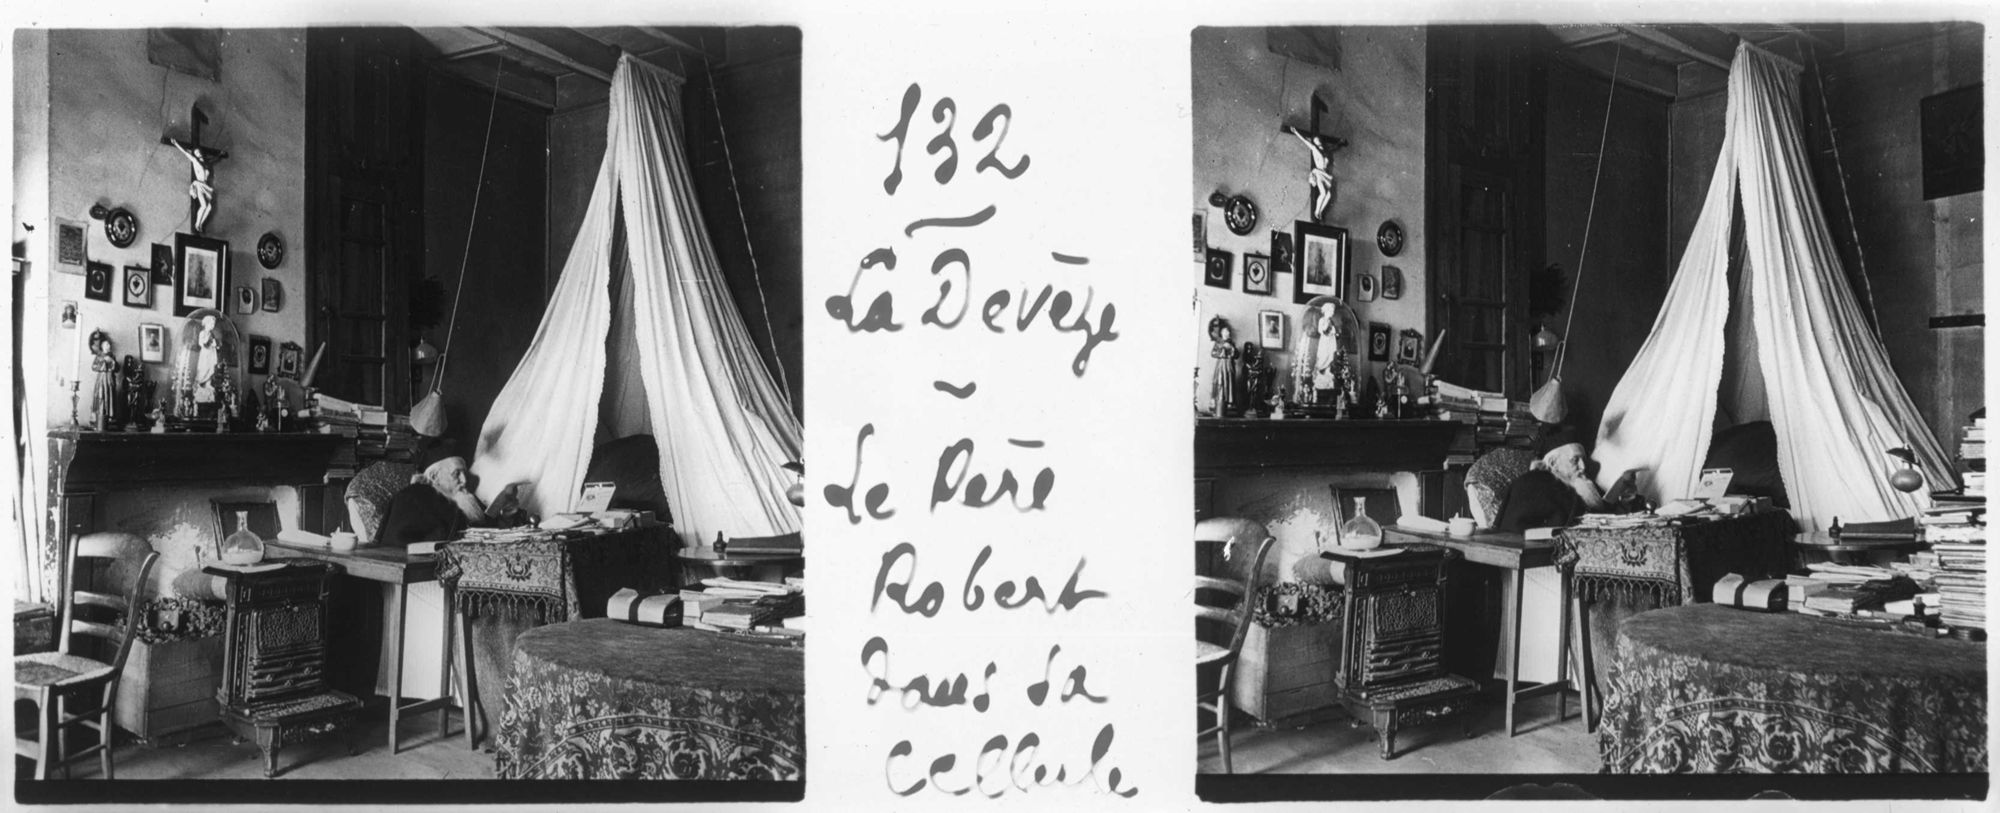 132
La Devèze
Le Père
Robert
dans sa
Cellule